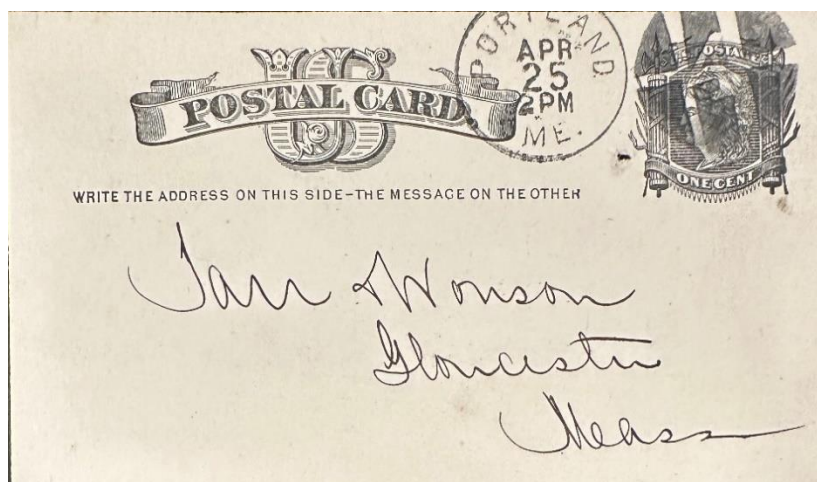 US
POSTAL CARD
PORTLAND
APR
25
2 PM
ME.
U.S. POSTAGE
ONE CENT
WRITE THE ADDRESS ON THIS SIDE–THE MESSAGE ON THE OTHER
Tarr & Wonson
Gloucester
Mass